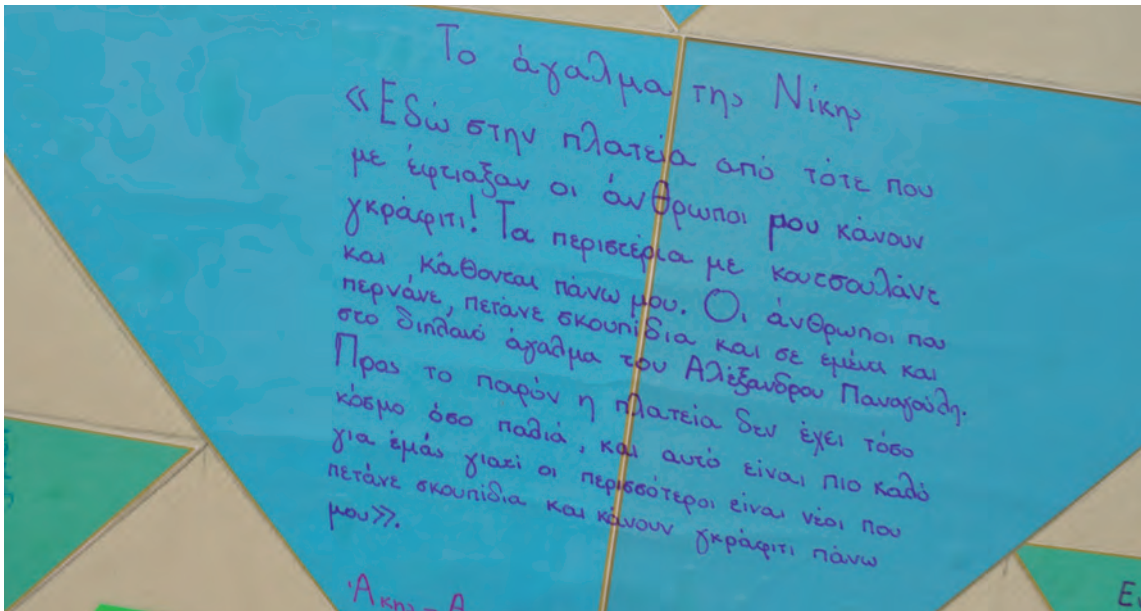 Το άγαλμα της Νίκης
«Εδώ στην πλατεία από τότε που
με έφτιαξαν οι άνθρωποι μου κάνουν
γκράφιτι! Τα περιστέρια με κουτσουλάνε
και κάθονται πάνω μου. Οι άνθρωποι που
περνάνε, πετάνε σκουπίδια και σε εμένα και
στο διπλανό άγαλμα του Αλέξανδρου Παναγούλη.
Προς το παρόν η πλατεία δεν έχει τόσο
κόσμο όσο παλιά, και αυτό είναι πιο καλό
για εμάς γιατί οι περισσότεροι είναι νέοι που
πετάνε σκουπίδια και κάνουν γκράφιτι πάνω
μου».